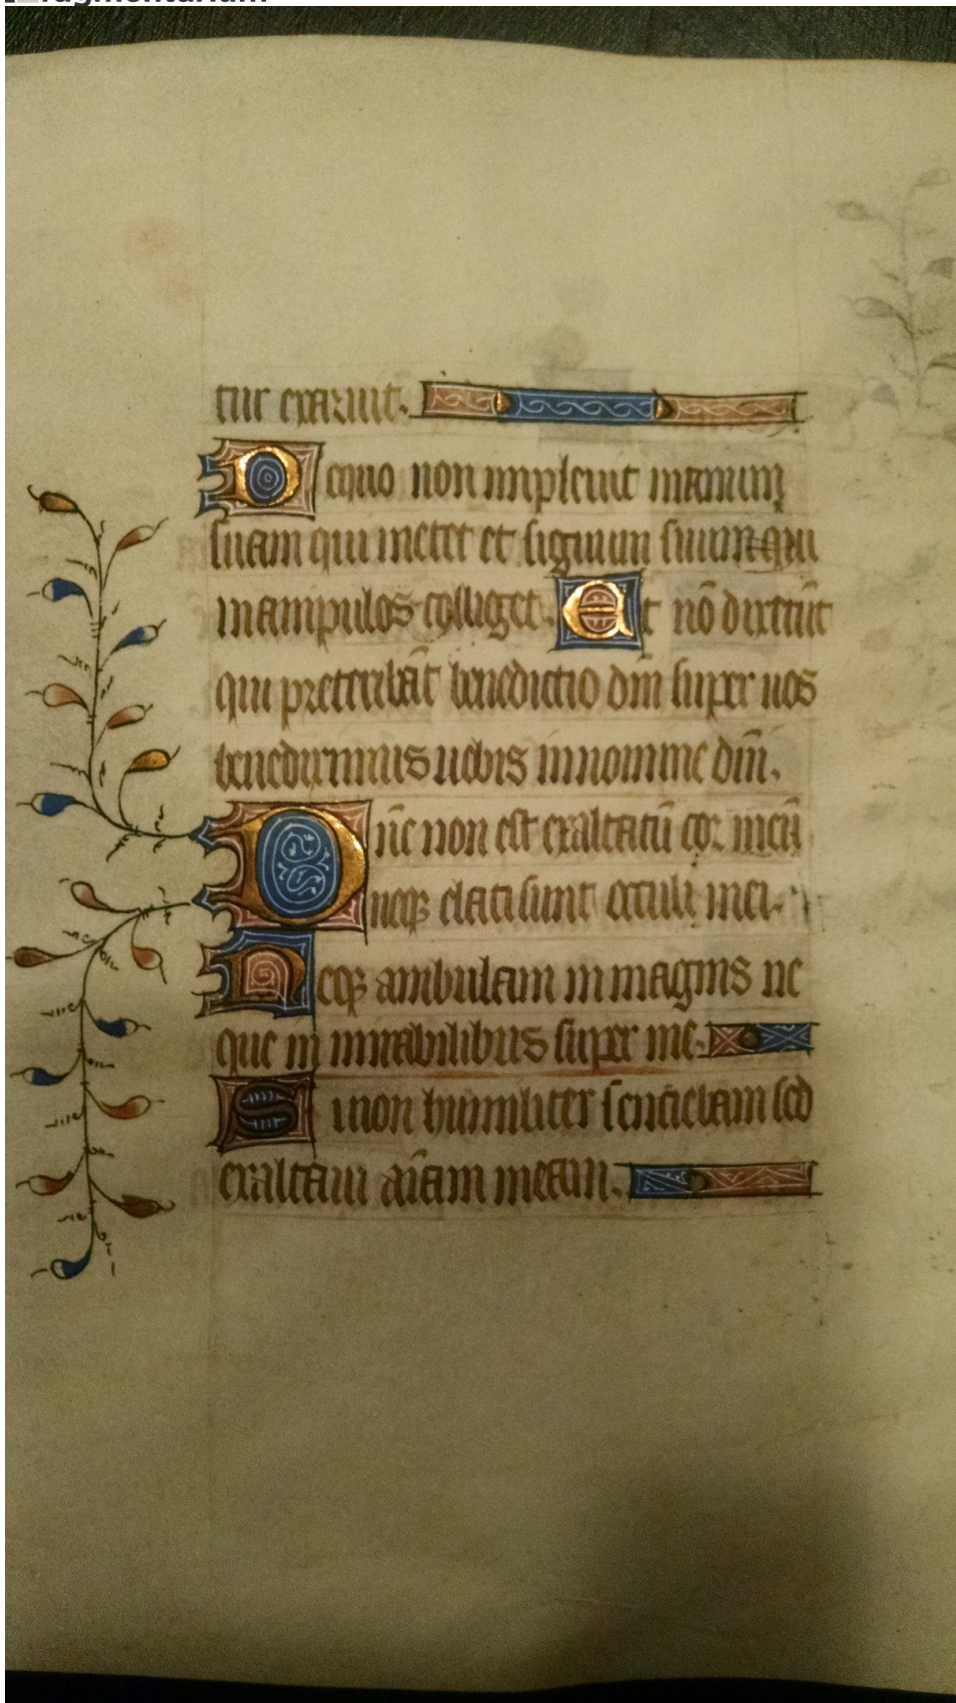 tur exaruit.
De quo non impleuit manum
suam qui metet et siguum suum qui
manipulos colliget. Et nō dixerūt
qui preteribāt benedictio dm̄i super uos
benediximus uobis in nomine dm̄i.
Dn̄e non est exaltatū cor meū
neqꝫ elati sunt occuli mei.
Neqꝫ ambulaui in magnis ne
que in mirabilibus super me.
Si non humiliter sentiebam sed
exaltaui aīam meam.